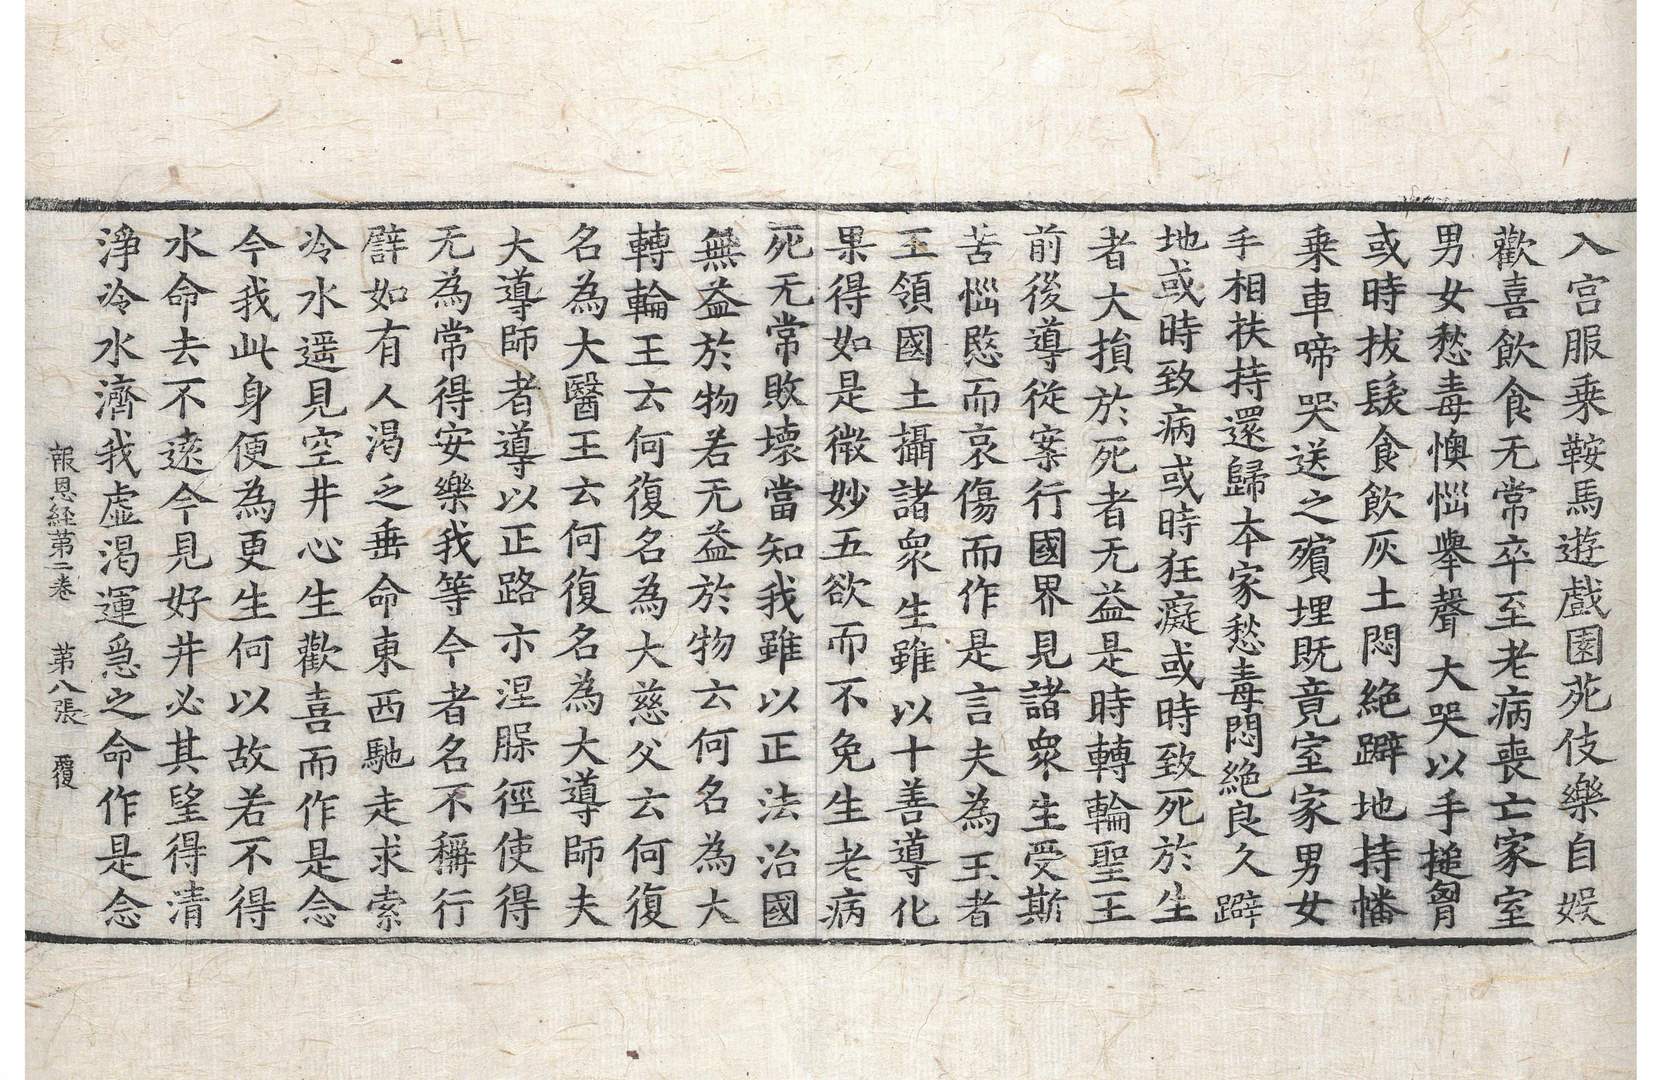 入宮服乗鞍馬遊戲園苑伎樂自娛
歡喜飲食无常卒至老病喪亡家室
男女愁毒懊惱舉聲大哭以手搥胷
或時拔髮食飲灰土悶絶躃地持幡
乗車啼哭送之殯埋既竟室家男女
手相扶持還歸本家愁毒悶絶良久躃
地或時致病或時狂癡或時致死於生
者大損於死者无益是時轉輪聖王
前後導從案行國界見諸衆生受斯
苦惱愍而哀傷而作是言夫為王者
王領國土攝諸衆生雖以十善導化
果得如是微妙五欲而不免生老病
死无常敗壞當知我雖以正法治國
無益於物若无益於物云何名為大
轉輪王云何復名為大慈父云何復
名為大醫王云何復名為大導師夫
大導師者導以正路示涅腺徑使得
无為常得安樂我等今者名不稱行
譬如有人渇乏垂命東西馳走求索
冷水遥見空井心生歡喜而作是念
今我此身便為更生何以故若不得
水命去不遠今見好井必其望得清
淨冷水濟我虛渇運急之命作是念
報恩経第二卷　第八張　覆